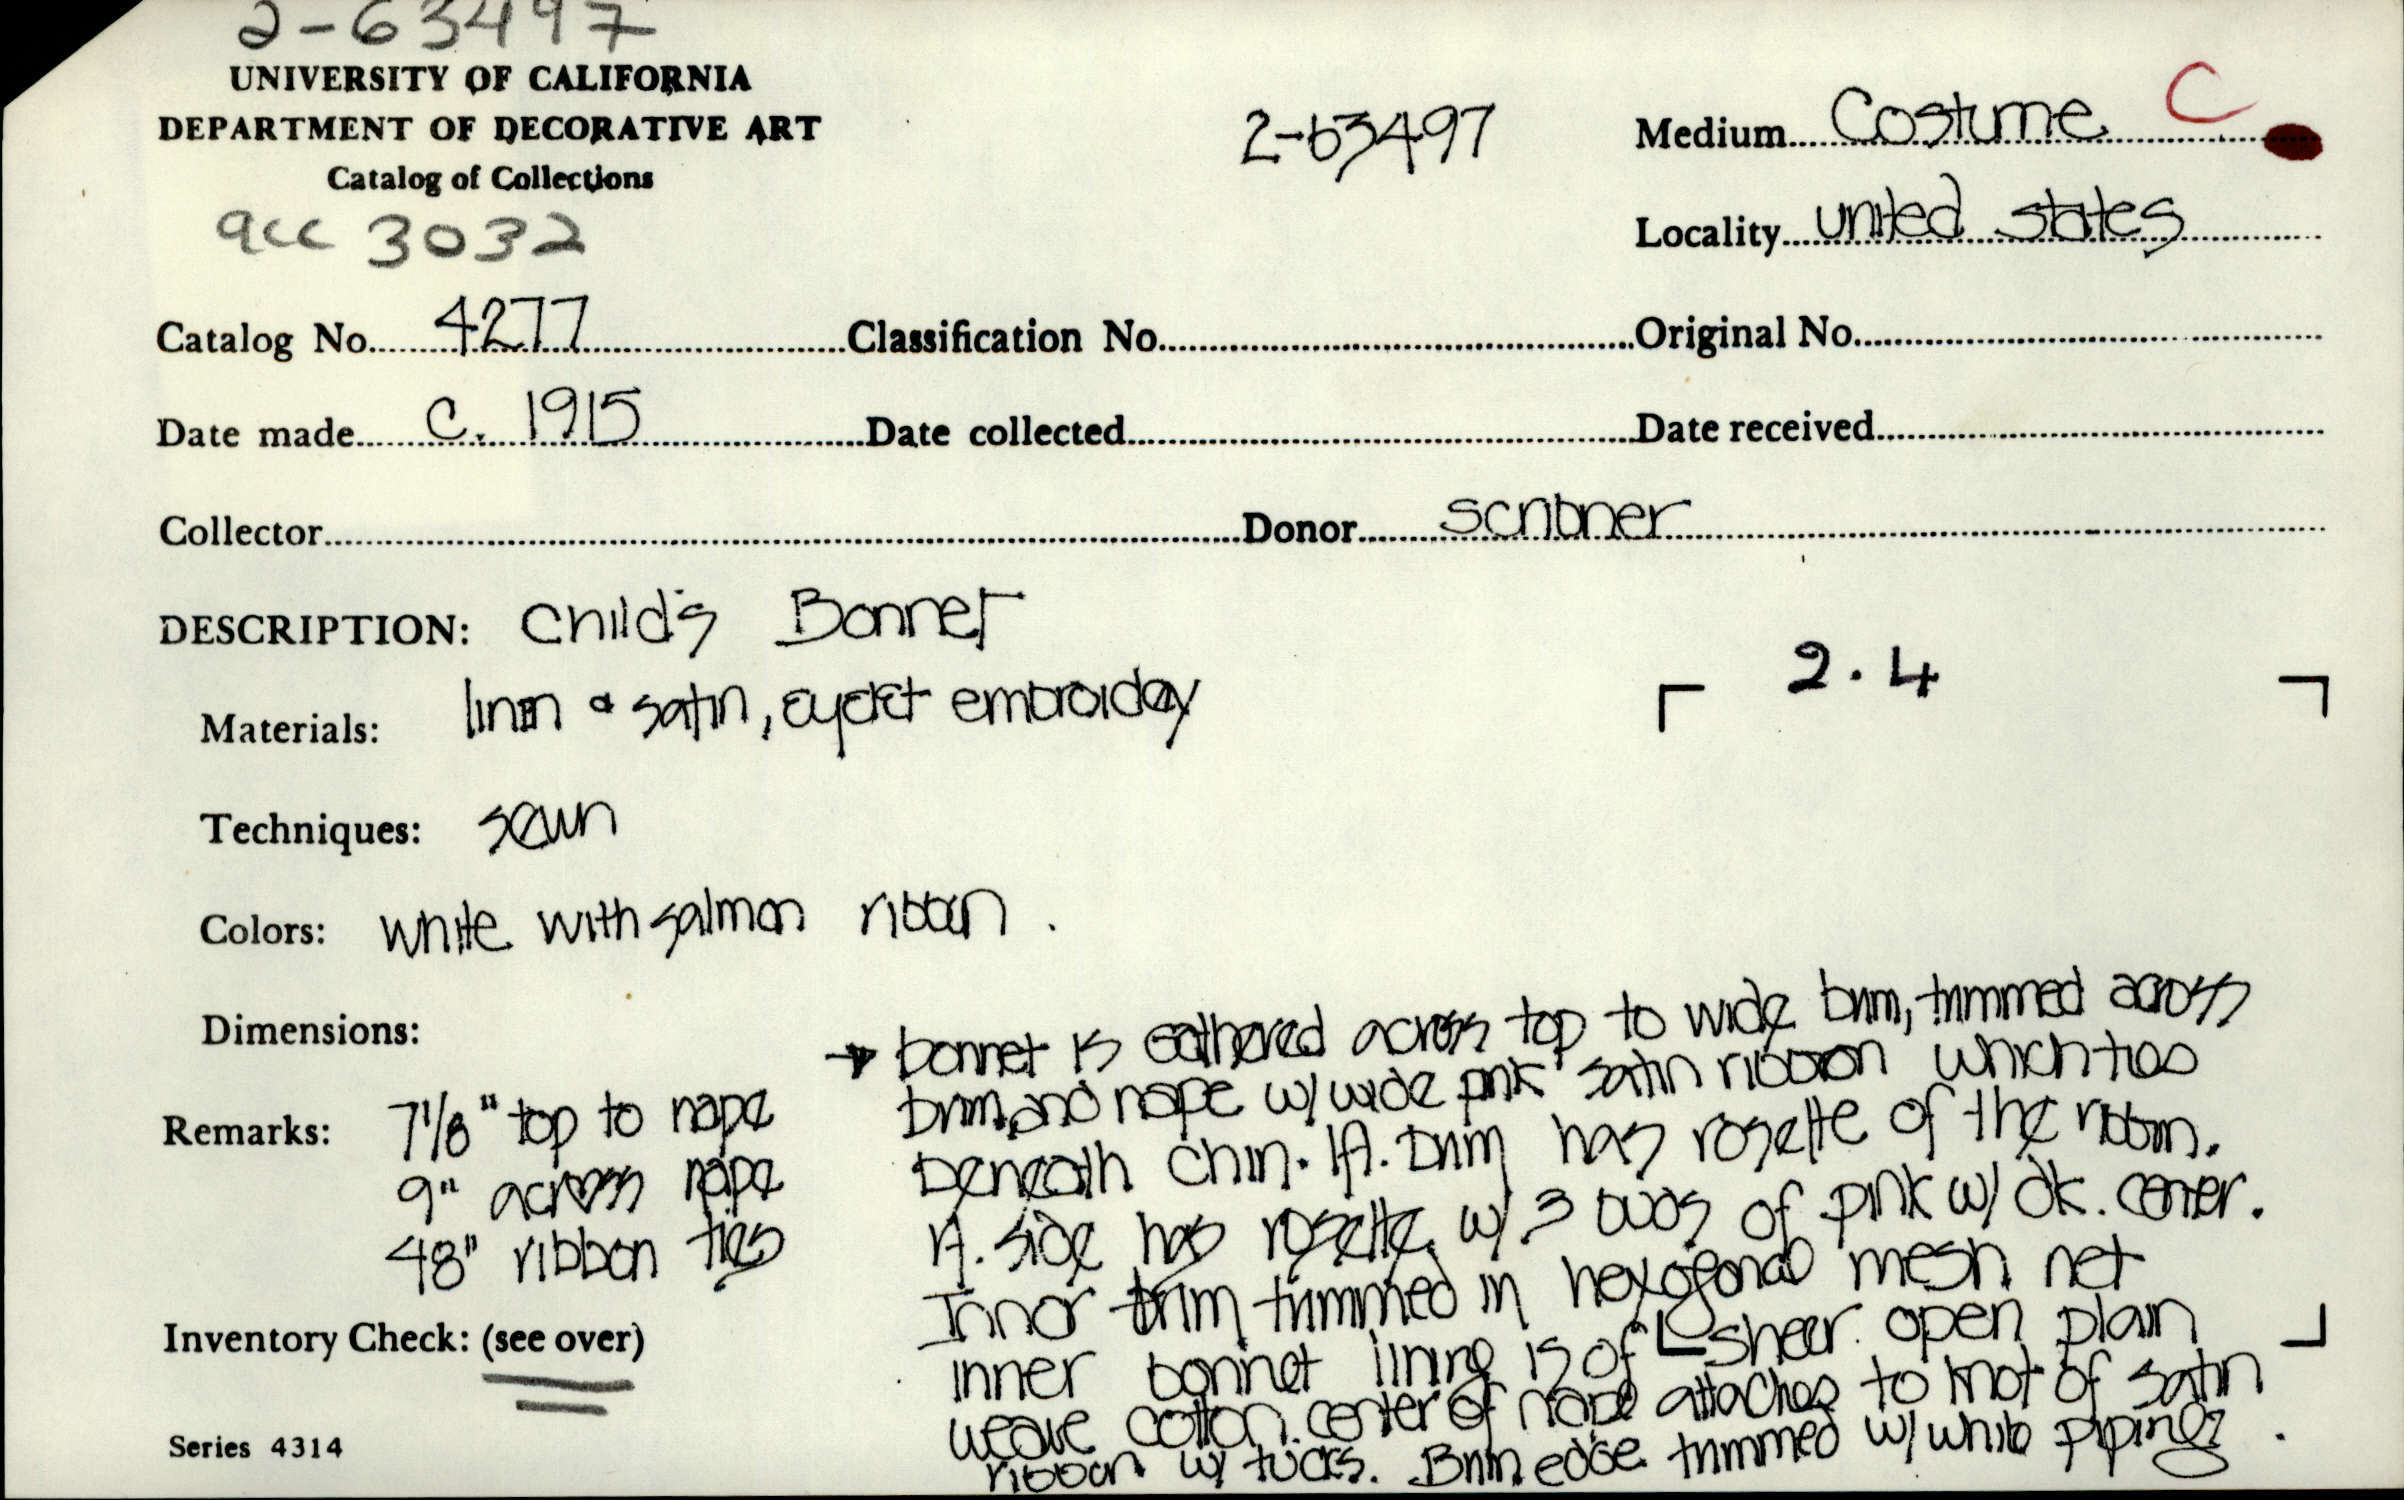 2-63497
UNIVERSITY OF CALIFORNIA
DEPARTMENT OF DECORATIVE ART
Catalog of Collections
acc 3032
2-63497
Medium Costume C
Locality united states
Catalog No. 4277 Classification No. Original No.
Date made C. 1915 Date collected Date received
Collector Donor Scribner
DESCRIPTION: Child's Bonnet
2.4
Materials: linen & satin, eyelet embroidery
Techniques: sewn
Colors: white with salmon ribbon.
Dimensions:
Remarks: 7 1/8" top to nape
9" across nape
48" ribbon ties
→ bonnet is gathered across top to wide brim, trimmed across
brim and nape w/ wide pink satin ribbon which ties
beneath chin. lft. brim has rosette of the ribbon.
rt. side has rosette w/ 3 buds of pink w/ dk. center.
Inner brim trimmed in hexogonal mesh net
inner bonnet lining is of sheer open plain
weave cotton. center of nape attaches to knot of satin
ribbon w/ tucks. Brim edge trimmed w/ white piping.
Inventory Check: (see over)
Series 4314